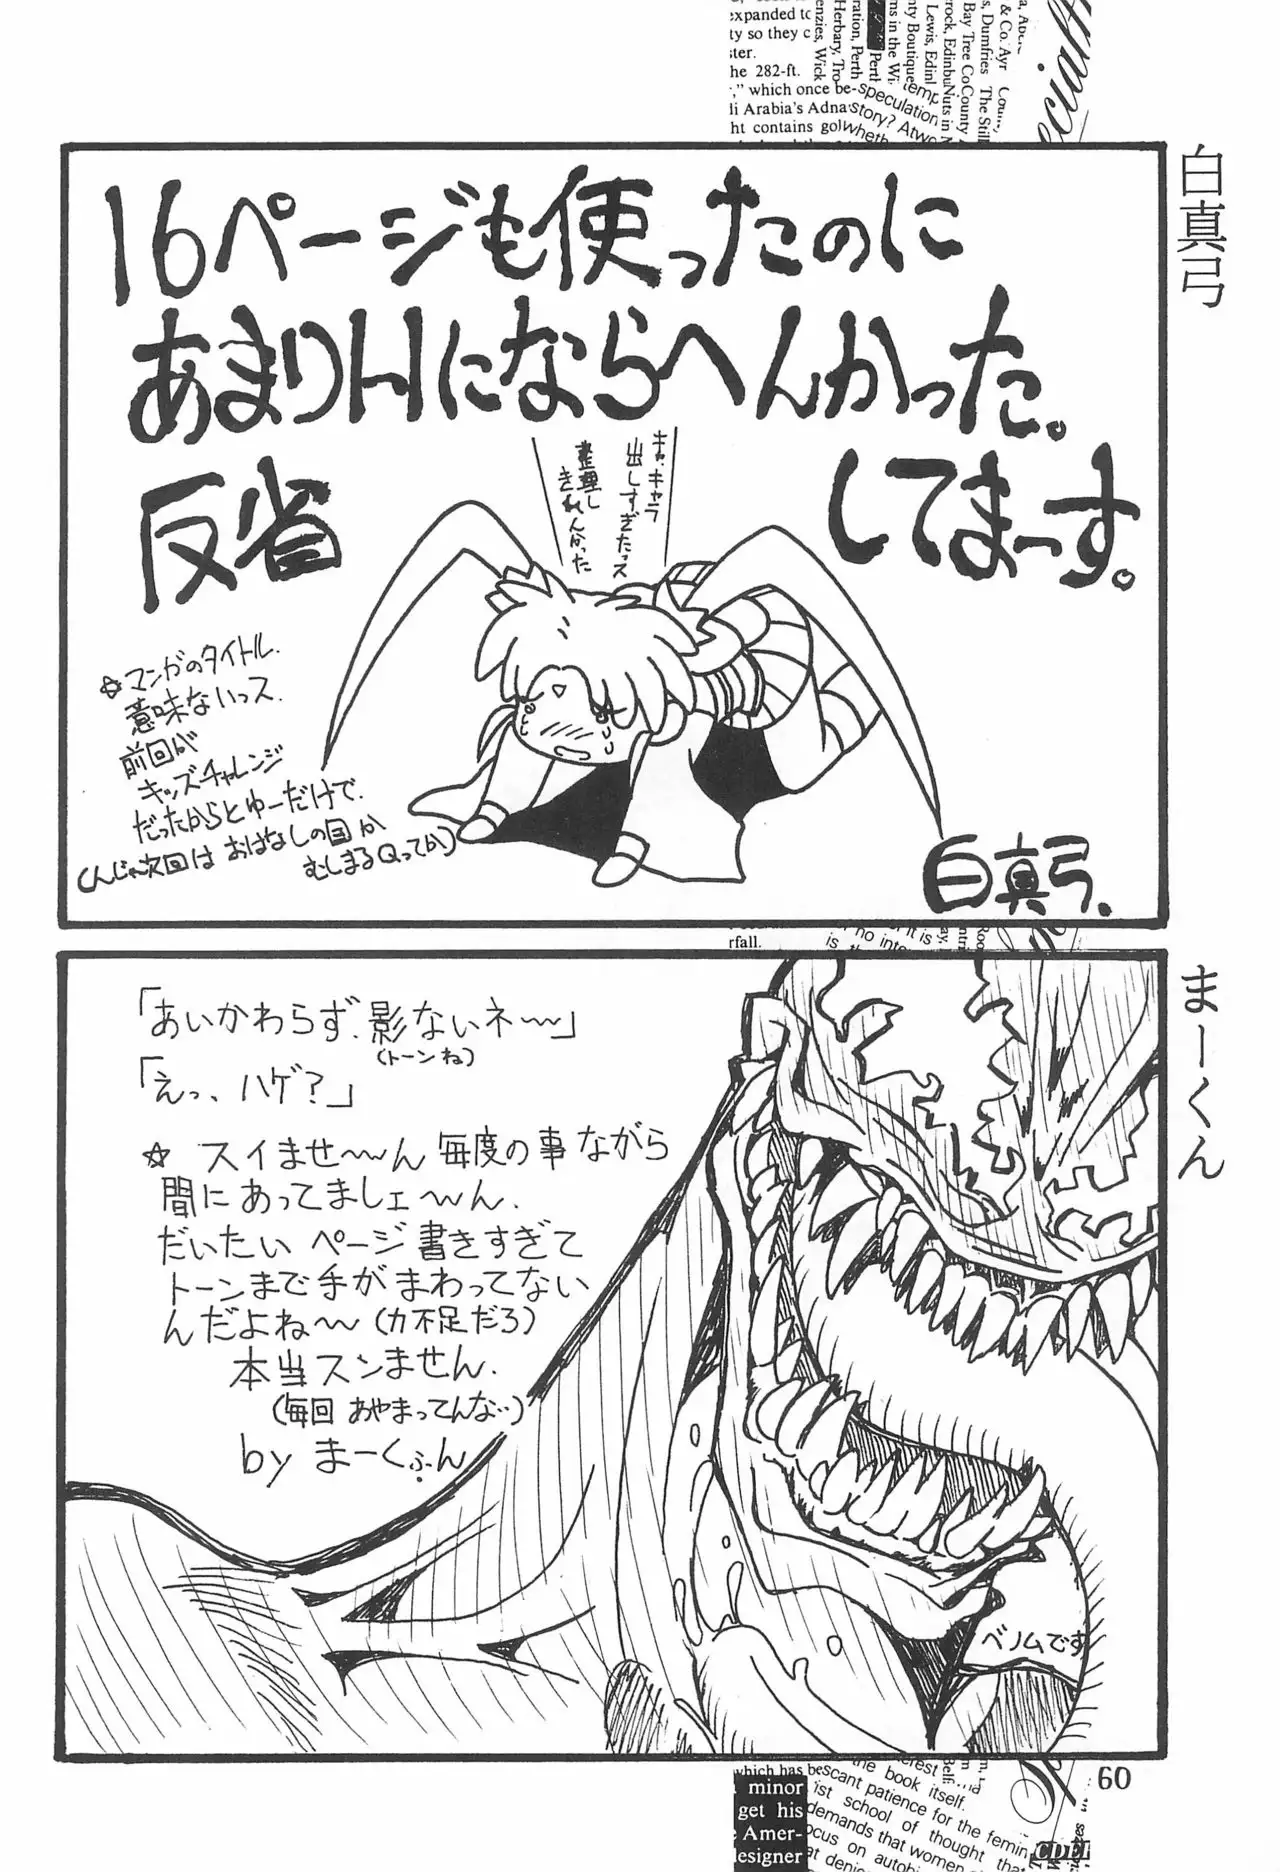 白真弓
16ページも使ったのに
あまりHにならへんかった。
反省
してまーす。
キャ、キャラ
出しすぎたっス
整理し
きれんかった
☆マンガのタイトル.
意味ないっス.
前回が
キッズチャレンジ
だったからとゆーだけで.
(んじゃ次回は おはなしの国か
むしまるQってか)
白真弓.
まーくん
「あいかわらず、影ないネ〜〜」
(トーンね)
「えっ、ハゲ?」
☆ スイませ〜〜ん 毎度の事ながら
間にあってましェ〜〜ん.
だいたい ページ書きすぎて
トーンまで手がまわってない
んだよね〜〜(力不足だろ)
本当スンません.
(毎回 あやまってんな‥)
by まーくぶん
ベノムです
60
expanded to
ty so they c
he 282-ft.
which once be-
li Arabia's Adna
ht contains gol
speculation
story? Atwo
wheth
Herbary, Tro
ration, Perth
Perth
ms in the Wi
nty Boutique
Lewis, Edinl
Nuts in
Bay Tree Co
County
s, Dumfries The Still
& Co. Ayr
rfall.
no inte
which has be
minor
get his
Amer-
esigner
scant patience for the femin
the book itself.
ist school of thought tha
demands that women
ocus on autobi
at denie
CDEF